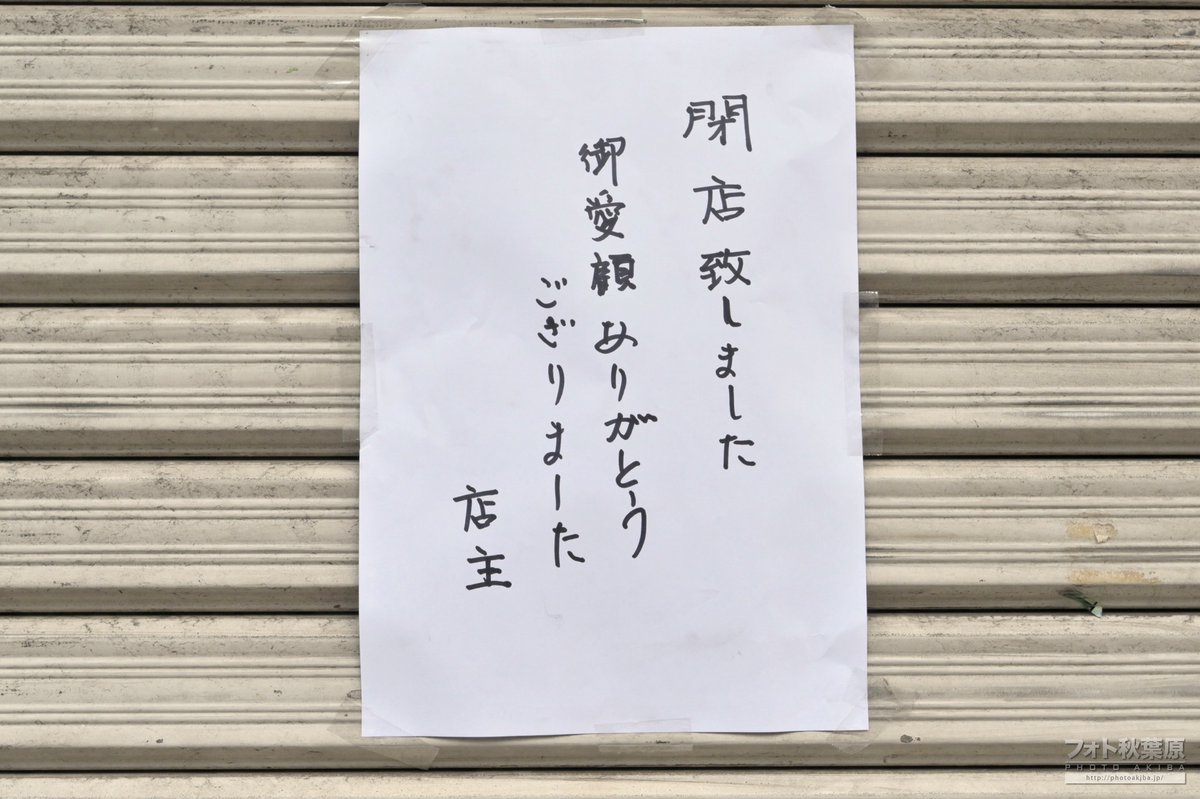 閉店致しました
御愛顧ありがとう
ございました
店主
フォト秋葉原
PHOTO AKIBA
http://photoakiba.jp/